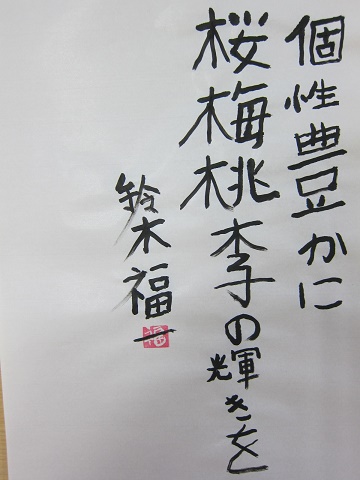 個性豊かに
桜梅桃李の輝きを
鈴木福一
福